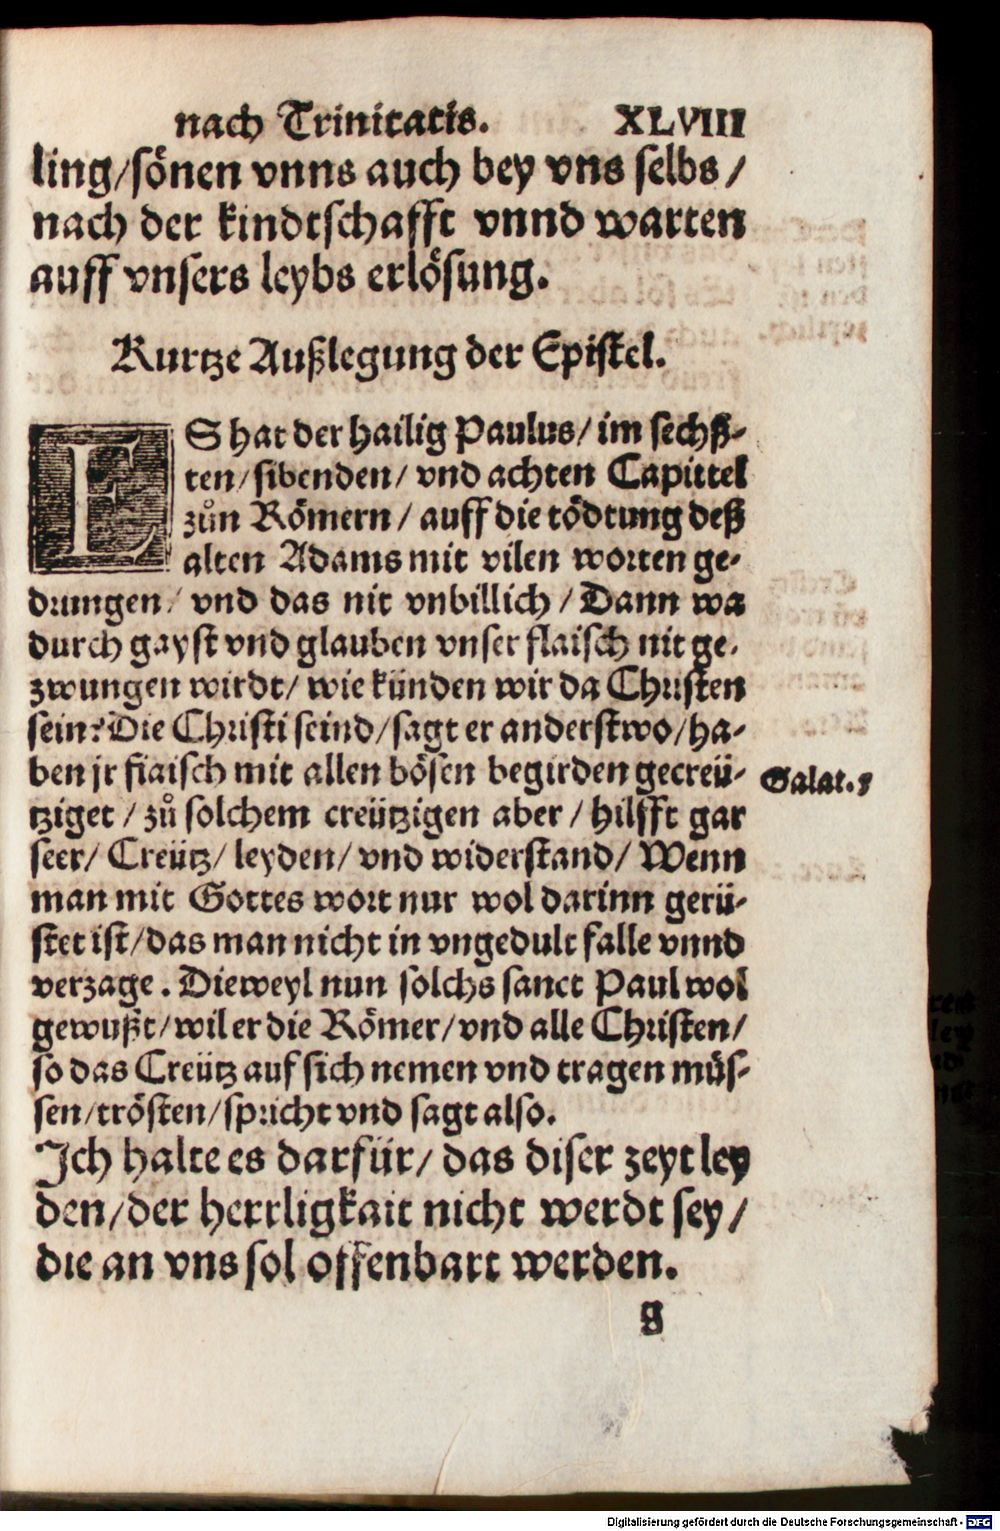 nach Trinitatis. XLVIII
ling/sönen vnns auch bey vns selbs/
nach der kindtschafft vnnd warten
auff vnsers leybs erlösung.
Kurtze Außlegung der Epistel.
ES hat der hailig Paulus/ im sechß-
ten/sibenden/ vnd achten Capittel
zůn Römern/ auff die tödtung deß
alten Adams mit vilen worten ge-
drungen/ vnd das nit vnbillich/ Dann wa
durch gayst vnd glauben vnser flaisch nit ge-
zwungen wirdt/ wie künden wir da Christen
sein? Die Christi seind/sagt er anderstwo/ha-
ben jr flaisch mit allen bösen begirden gecreü-
tziget/ zů solchem creützigen aber/ hilfft gar
seer/ Creütz/ leyden/ vnd widerstand/ Wenn
man mit Gottes wort nur wol darinn gerü-
stet ist/das man nicht in vngedult falle vnnd
verzage. Dieweyl nun solchs sanct Paul wol
gewußt/wil er die Römer/vnd alle Christen/
so das Creütz auf sich nemen vnd tragen müs-
sen/trösten/spricht vnd sagt also.
Ich halte es darfür/ das diser zeyt ley
den/der herrligkait nicht werdt sey/
die an vns sol offenbart werden.
Galat. 5
g
Digitalisierung gefördert durch die Deutsche Forschungsgemeinschaft - DFG